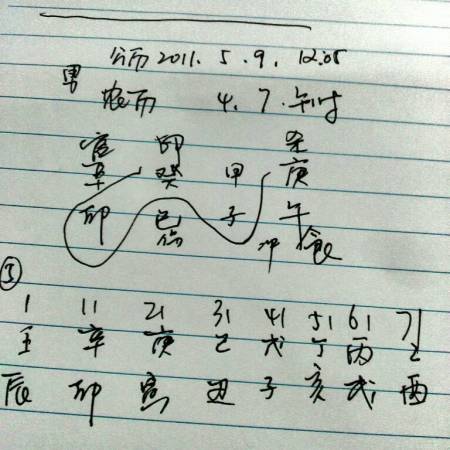 公历 2011. 5. 9. 12.05
男
农历 4. 7. 午时
官 印 杀
辛 癸 甲 庚
卯 巳 子 午
伤 冲 食
1 11 21 31 41 51 61 71
壬 辛 庚 己 戊 丁 丙 乙
辰 卯 寅 丑 子 亥 戌 酉